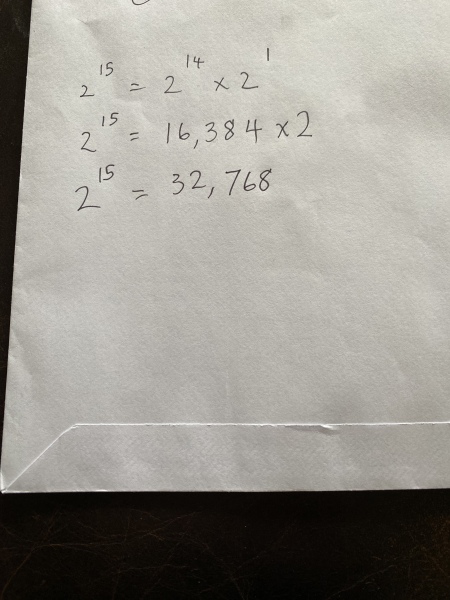 2¹⁵ = 2¹⁴ × 2¹
2¹⁵ = 16,384 × 2
2¹⁵ = 32,768